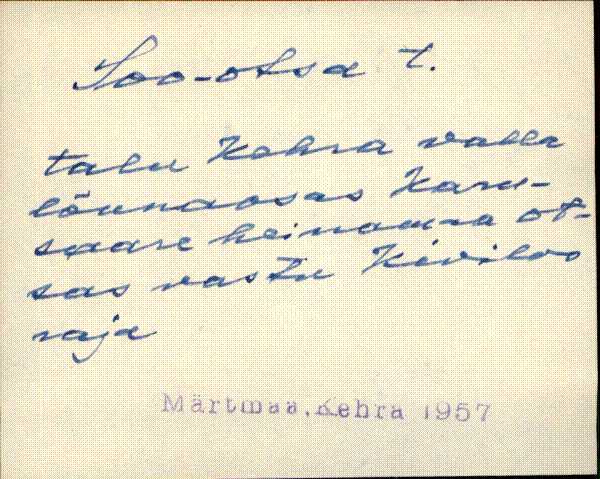 Soo-otsa t.
talu Kehra valla
lõunaosas Karu-
saare heinamaa ot-
sas vastu Kiviloo
raja
Märtmaa, Kehra 1957